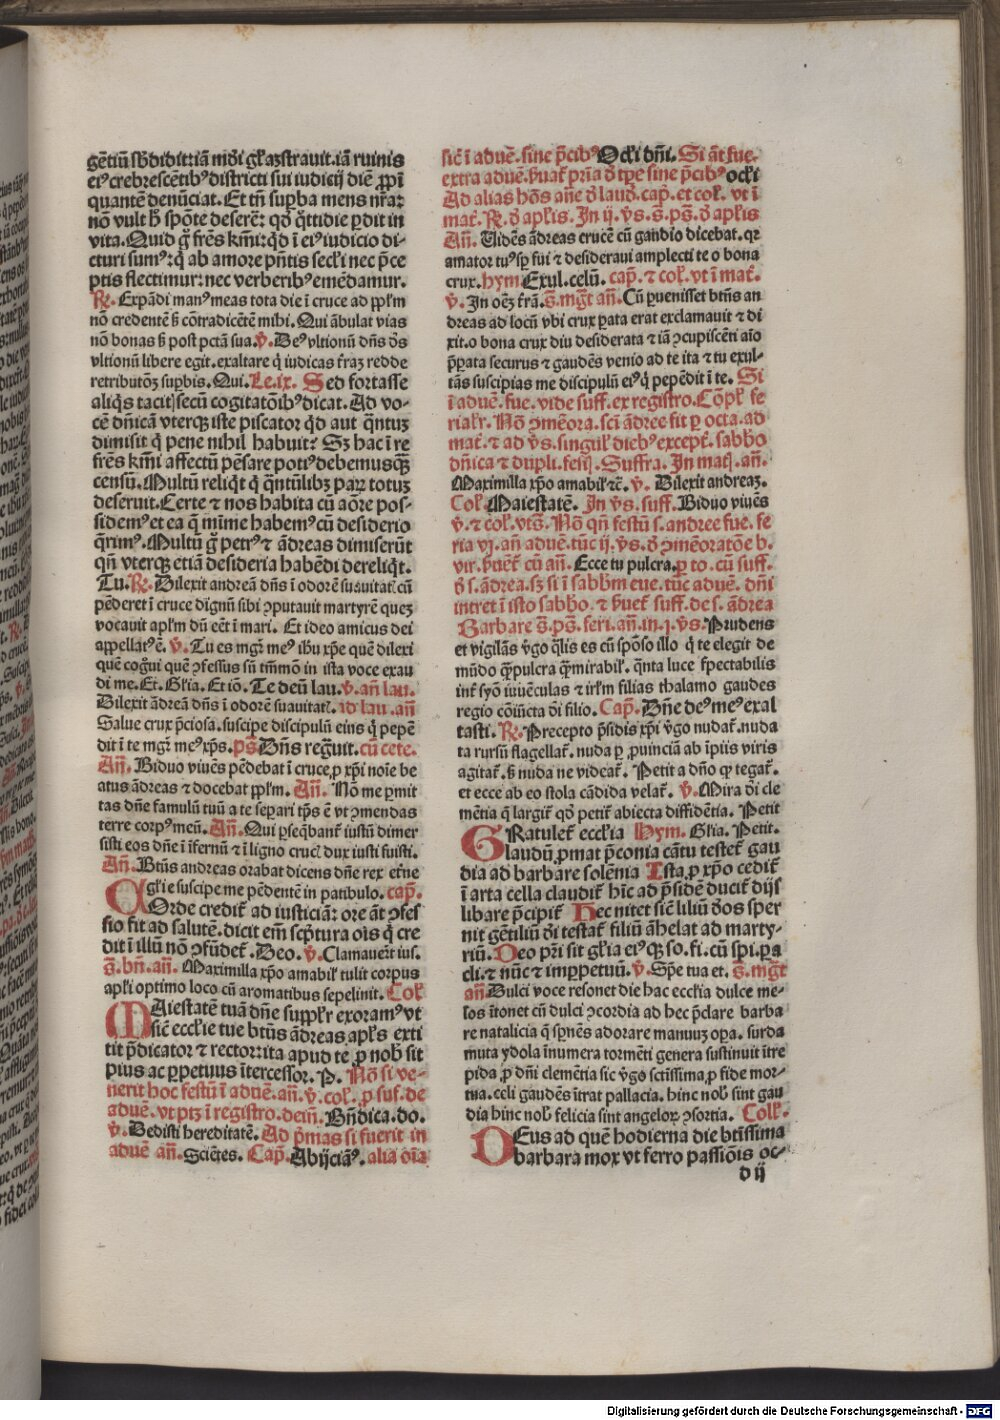 gētiū sbdidit: iā mdi gl'az strauit. iā ruinis
eiꝰ crebrescētibꝰ districti sui iudicij diē ꝓpī
quantē denūciat. Et tn̄ supba mens nr̄a:
nō vult h̄ spōte deserē: qd q̄ttidie ꝑdit in
vita. Quid ḡ frēs km̄i: qd ī eiꝰ iudicio di-
cturi sumꝰ: q̄ ab amore pn̄tis secl'i nec p̄ce
ptis flectimur: nec verberibꝰ emēdamur.
R̄. Expādi manꝰ meas tota die ī cruce ad pplm̄
nō credentē s̄ cōtradicētē mihi. Qui ābulat vias
nō bonas s̄ post pctā sua. v̄. Deꝰ vltionū dn̄s dꝰs
vltionū libere egit. exaltare q̄ iudicas t̄raz redde
retributōz supbis. Qui. Le. ix. Sed fortasse
aliq̄s tacit⁹ secū cogitatōibꝰ dicat. Ad vo-
cē dn̄icā vterqz iste piscator qd aut q̄ntuz
dimisit q̄ pene nihil habuit? Sz hac ī re
frēs km̄i affectū pēsare potiꝰ debemus qz̄
censū. Multū reliqt q̄ q̄ntūlibz paꝝ totuz
deseruit. Certe ⁊ nos habita cū aōre pos-
sidemꝰ et ea q̄ mīme habemꝰ cū desiderio
q̄rimꝰ. Multū ḡ petrꝰ ⁊ ādreas dimiserūt
qn̄ vterqz etiā desideria habēdi dereliqt.
Tu. R̄. Dilexit andreā dn̄s ī odorē suauitat̄. cū
pēderet ī cruce dignū sibi ꝯputauit martyrē quez
vocauit apl'm dū eēt ī mari. Et ideo amicus dei
appellatꝰ ē. v̄. Tu es mgr̄ meꝰ ihu xp̄e quē dilexi
quē cogui quē ꝯfessus sū tm̄mō in ista voce exau
di me. Et. Gl'ia. Et iō. Te deū lau. v̄. an̄ lau.
Dilexit ādreā dn̄s ī odorē suauitat̄. Ad lau. an̄
Salue crux p̄ciosa. suscipe discipulū eius q̄ pepē
dit ī te mgr̄ meꝰ xp̄s. ps̄. Dn̄s regnuit. cū cete.
An̄. Biduo viuēs pēdebat ī cruce ꝓ xpi noīe be
atus ādreas ⁊ docebat pplm̄. An̄. Nō me ꝑmit
tas dn̄e famulū tuū a te separi tp̄s ē vt ꝯmendas
terre corpꝰ meū. An̄. Qui ꝑseqbant̄ iustū dimer
sisti eos dn̄e ī īfernū ⁊ ī ligno cruc̄ dux iusti fuisti.
An̄. Btūs andreas orabat dicens dn̄e rex et̄ne
gl'ie suscipe me pēdentē in patibulo. cap̄.
COrde credit̄ ad iusticiā: ore āt ꝯfes
sio fit ad salutē. dicit em̄ scp̄tura oīs q̄ cre
dit ī illū nō ꝯfūdet̄. Deo. v̄. Clamauer̄t ius.
s̄. bn̄. an̄. Maximilla xp̄o amabil' tulit corpus
apl'i optimo loco cū aromatibus sepeliuit. Col'
MAiestatē tuā dn̄e suppl'r exoramꝰ vt
sic̄ eccl'ie tue btūs ādreas apl's exti
tit p̄dicator ⁊ rector: ita apud te ꝓ nob̄ sit
pius ac ꝑpetuus ītercessor. P. Nō si ve-
nerit hoc festū ī aduē. an̄. v̄. col'. ꝓ suf. de
aduē. vt ptz ī registro. dein̄. Bn̄dica. do.
v̄. Dedisti hereditatē. Ad p̄mas si fuerit in
aduē an̄. Sciētes. Cap̄. Abijciāꝰ. alia oīa
sic̄ ī aduē. sine p̄cibꝰ Ocl'i dn̄i. Si āt fue.
extra aduē. suat̄ prīa d̄ tpe sine p̄cibꝰ ocl'i
Ad alias hōs an̄e d̄ laud. cap̄. et col'. vt ī
mat̄. R̄. d̄ apl'is. In ij. v̄s. s̄. ps̄. d̄ apl'is
An̄. Uidēs ādreas crucē cū gaudio dicebat. qr
amator tuꝰ sp̄ fui ⁊ desideraui amplecti te o bona
crux. hym Exul. celū. cap̄. ⁊ col'. vt ī mat̄.
v̄. In oēz t̄rā. s̄. mḡt an̄. Cū ꝑuenisset btūs an
dreas ad locū vbi crux ꝑata erat exclamauit ⁊ di
xit. o bona crux diu desiderata ⁊ iā ꝯcupiscēti aīo
p̄ꝑata securus ⁊ gaudēs venio ad te ita ⁊ tu exul-
tās suscipias me discipulū eiꝰ q̄ pepēdit ī te. Si
ī aduē. fue. vide suff. ex registro. Cōpl' fe
rial'r. Nō ꝯmēora. sci ādree fit ꝑ octa. ad
mat̄. ⁊ ad v̄s. singul' diebꝰ except̄. sabbo
dn̄ica ⁊ dupli. fesi⁊. Suffra. In mat⁊. an̄.
Maximilla xp̄o amabil' ⁊c̄. v̄. Dilexit andreaz.
Col'. Maiestatē. In v̄s. suff. Biduo viuēs
v̄. ⁊ col'. vts̄. Nō qn̄ festū s. andree fue. fe
ria vj. an̄ aduē. tūc ij. v̄s. d̄ ꝯmēoratōe b.
vir. suēt̄ cū an̄. Ecce tu pulcra. ꝑ to. cū suff.
d̄ s. ādrea. sz si ī sabbm eue. tūc aduē. dn̄i
intret ī isto sabbo. ⁊ suet̄ suff. de s. ādrea
Barbare s̄. ps̄. feri. an̄. in. j. v̄s. Prudens
et vigilās v̄go q̄lis es cū spōso illo q̄ te elegit de
mūdo q̄ pulcra q̄ mirabil'. q̄nta luce spectabilis
int̄ syō iuuēculas ⁊ irl'm filias thalamo gaudes
regio cōiūcta di filio. Cap̄. Dn̄e deꝰ meꝰ exal
tasti. R̄. Precepto p̄sidis xpi v̄go nudat̄. nuda
ta rursū flagellat̄. nuda ꝑ ꝓuinciā ab īpiis viris
agitat̄. s̄ nuda ne videat̄. Petit a dn̄o qr tegat̄.
et ecce ab eo stola cādida velat̄. v̄. Mira di cle
mētia q̄ largit̄ qd petit̄ abiecta diffidētia. Petit
GRatulet̄ eccl'ia Hym. Gl'ia. Petit.
laudū ꝓmat p̄conia cātu testet̄ gau
dia ad barbare solēnia Ista ꝓ xp̄o cedit̄
ī arta cella claudit̄ hīc ad p̄sidē ducit̄ dijs
libare p̄cipit̄ Hec nitet sic̄ liliū dos sper
nit gētiliū di testat̄ filiū āhelat ad marty-
riū. Deo pri sit gl'ia eiꝰ qz so. fi. cū spi. ꝑa
cli. ⁊ nūc ⁊ imꝑpetuū. v̄. Spe tua et. s̄. mḡt
an̄. Dulci voce resonet die hac eccl'ia dulce me-
los ītonet cū dulci ꝯcordia ad hec p̄clare barba
re natalicia q̄ spnēs adorare manuuz oꝑa. surda
muta ydola īnumera tormēti genera sustinuit ītre
pida ꝓ dn̄i clemētia sic v̄gs sctīssima ꝓ fide mor-
tua. celi gaudēs ītrat pallacia. hinc nob̄ sint gau
dia hinc nob̄ felicia sint angeloꝝ ꝯsortia. Coll'.
DEus ad quē hodierna die btīssima
barbara mox vt ferro passiōis oc-
d ij
Digitalisierung gefördert durch die Deutsche Forschungsgemeinschaft - DFG